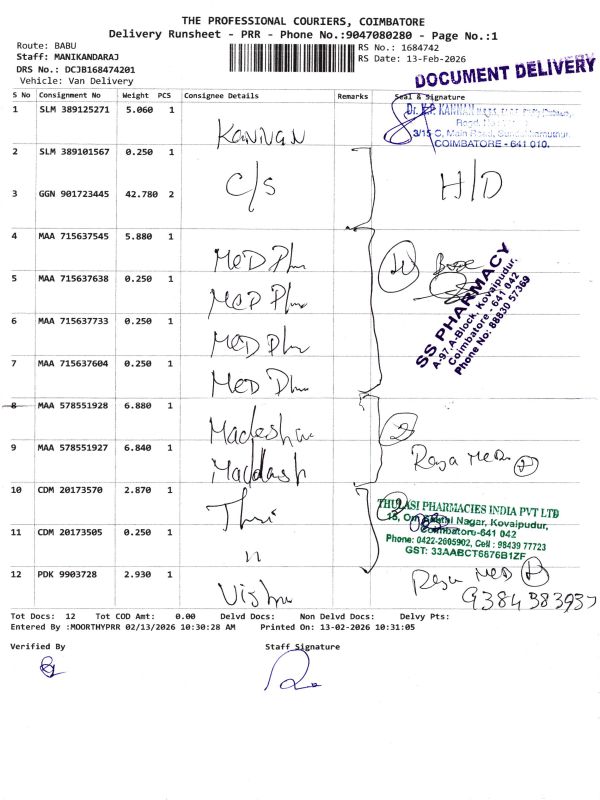 THE PROFESSIONAL COURIERS, COIMBATORE
Delivery Runsheet - PRR - Phone No.:9047080280 - Page No.:1
Route: BABU
Staff: MANIKANDARAJ
DRS No.: DCJB168474201
Vehicle: Van Delivery
RS No.: 1684742
RS Date: 13-Feb-2026
DOCUMENT DELIVERY
S No Consignment No Weight PCS Consignee Details Remarks Seal & Signature
1 SLM 389125271 5.060 1 Kannan
Dr. K.P. KANNAN
3/15 C, Main Road,
COIMBATORE - 641 010.
2 SLM 389101567 0.250 1
C/S H/D
3 GGN 901723445 42.780 2
4 MAA 715637545 5.880 1 MED Plu
5 MAA 715637638 0.250 1 MED Plu
6 MAA 715637733 0.250 1 MED Plu
7 MAA 715637604 0.250 1 MED Plu
SS PHARMACY
A-97, A-Block, Kovaipudur,
Coimbatore - 641 042
Phone No: 88830 57369
8 MAA 578551928 6.880 1 Madesh
2
9 MAA 578551927 6.840 1 Madesh
Raja MED 2
10 CDM 20173570 2.870 1 Thu
2
THULASI PHARMACIES INDIA PVT LTD
Nagar, Kovaipudur,
Coimbatore-641 042
Phone: 0422-2605902, Cell : 98439 77723
GST: 33AABCT6676B1ZF
11 CDM 20173505 0.250 1 "
12 PDK 9903728 2.930 1 Vishu
Raja MED
9384383937
Tot Docs: 12 Tot COD Amt: 0.00 Delvd Docs: Non Delvd Docs: Delvy Pts:
Entered By :MOORTHYPRR 02/13/2026 10:30:28 AM Printed On: 13-02-2026 10:31:05
Verified By Staff Signature